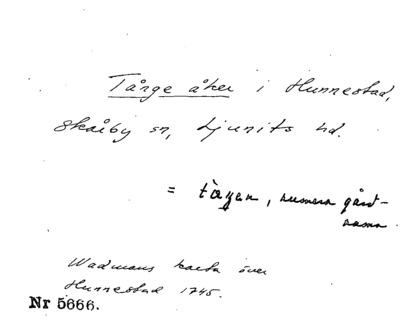 Tånge åker i Hunnestad,
Skårby sn, Ljunits hd.
= tågen, numera gård-
namn
Wadmans karta över
Hunnestad 1745.
Nr 5666.